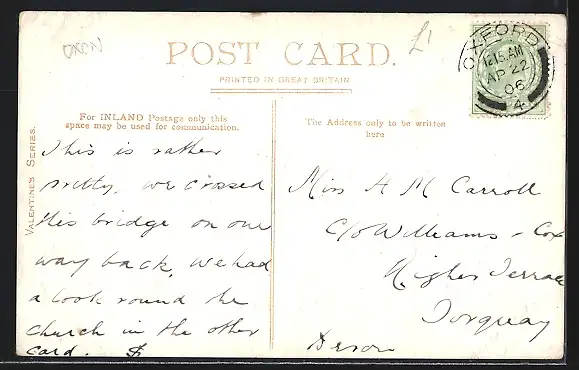 OXON
£1
POST CARD.
PRINTED IN GREAT BRITAIN
OXFORD
12.15.AM
AP 22
06
4
For INLAND Postage only this
space may be used for communication.
The Address only to be written
here
VALENTINE'S SERIES.
This is rather
pretty, we crossed
this bridge on our
way back, we had
a look round the
church in the other
card.
Miss H M Carroll
C/o Williams - Cox
Higher Terrace
Torquay
Devon